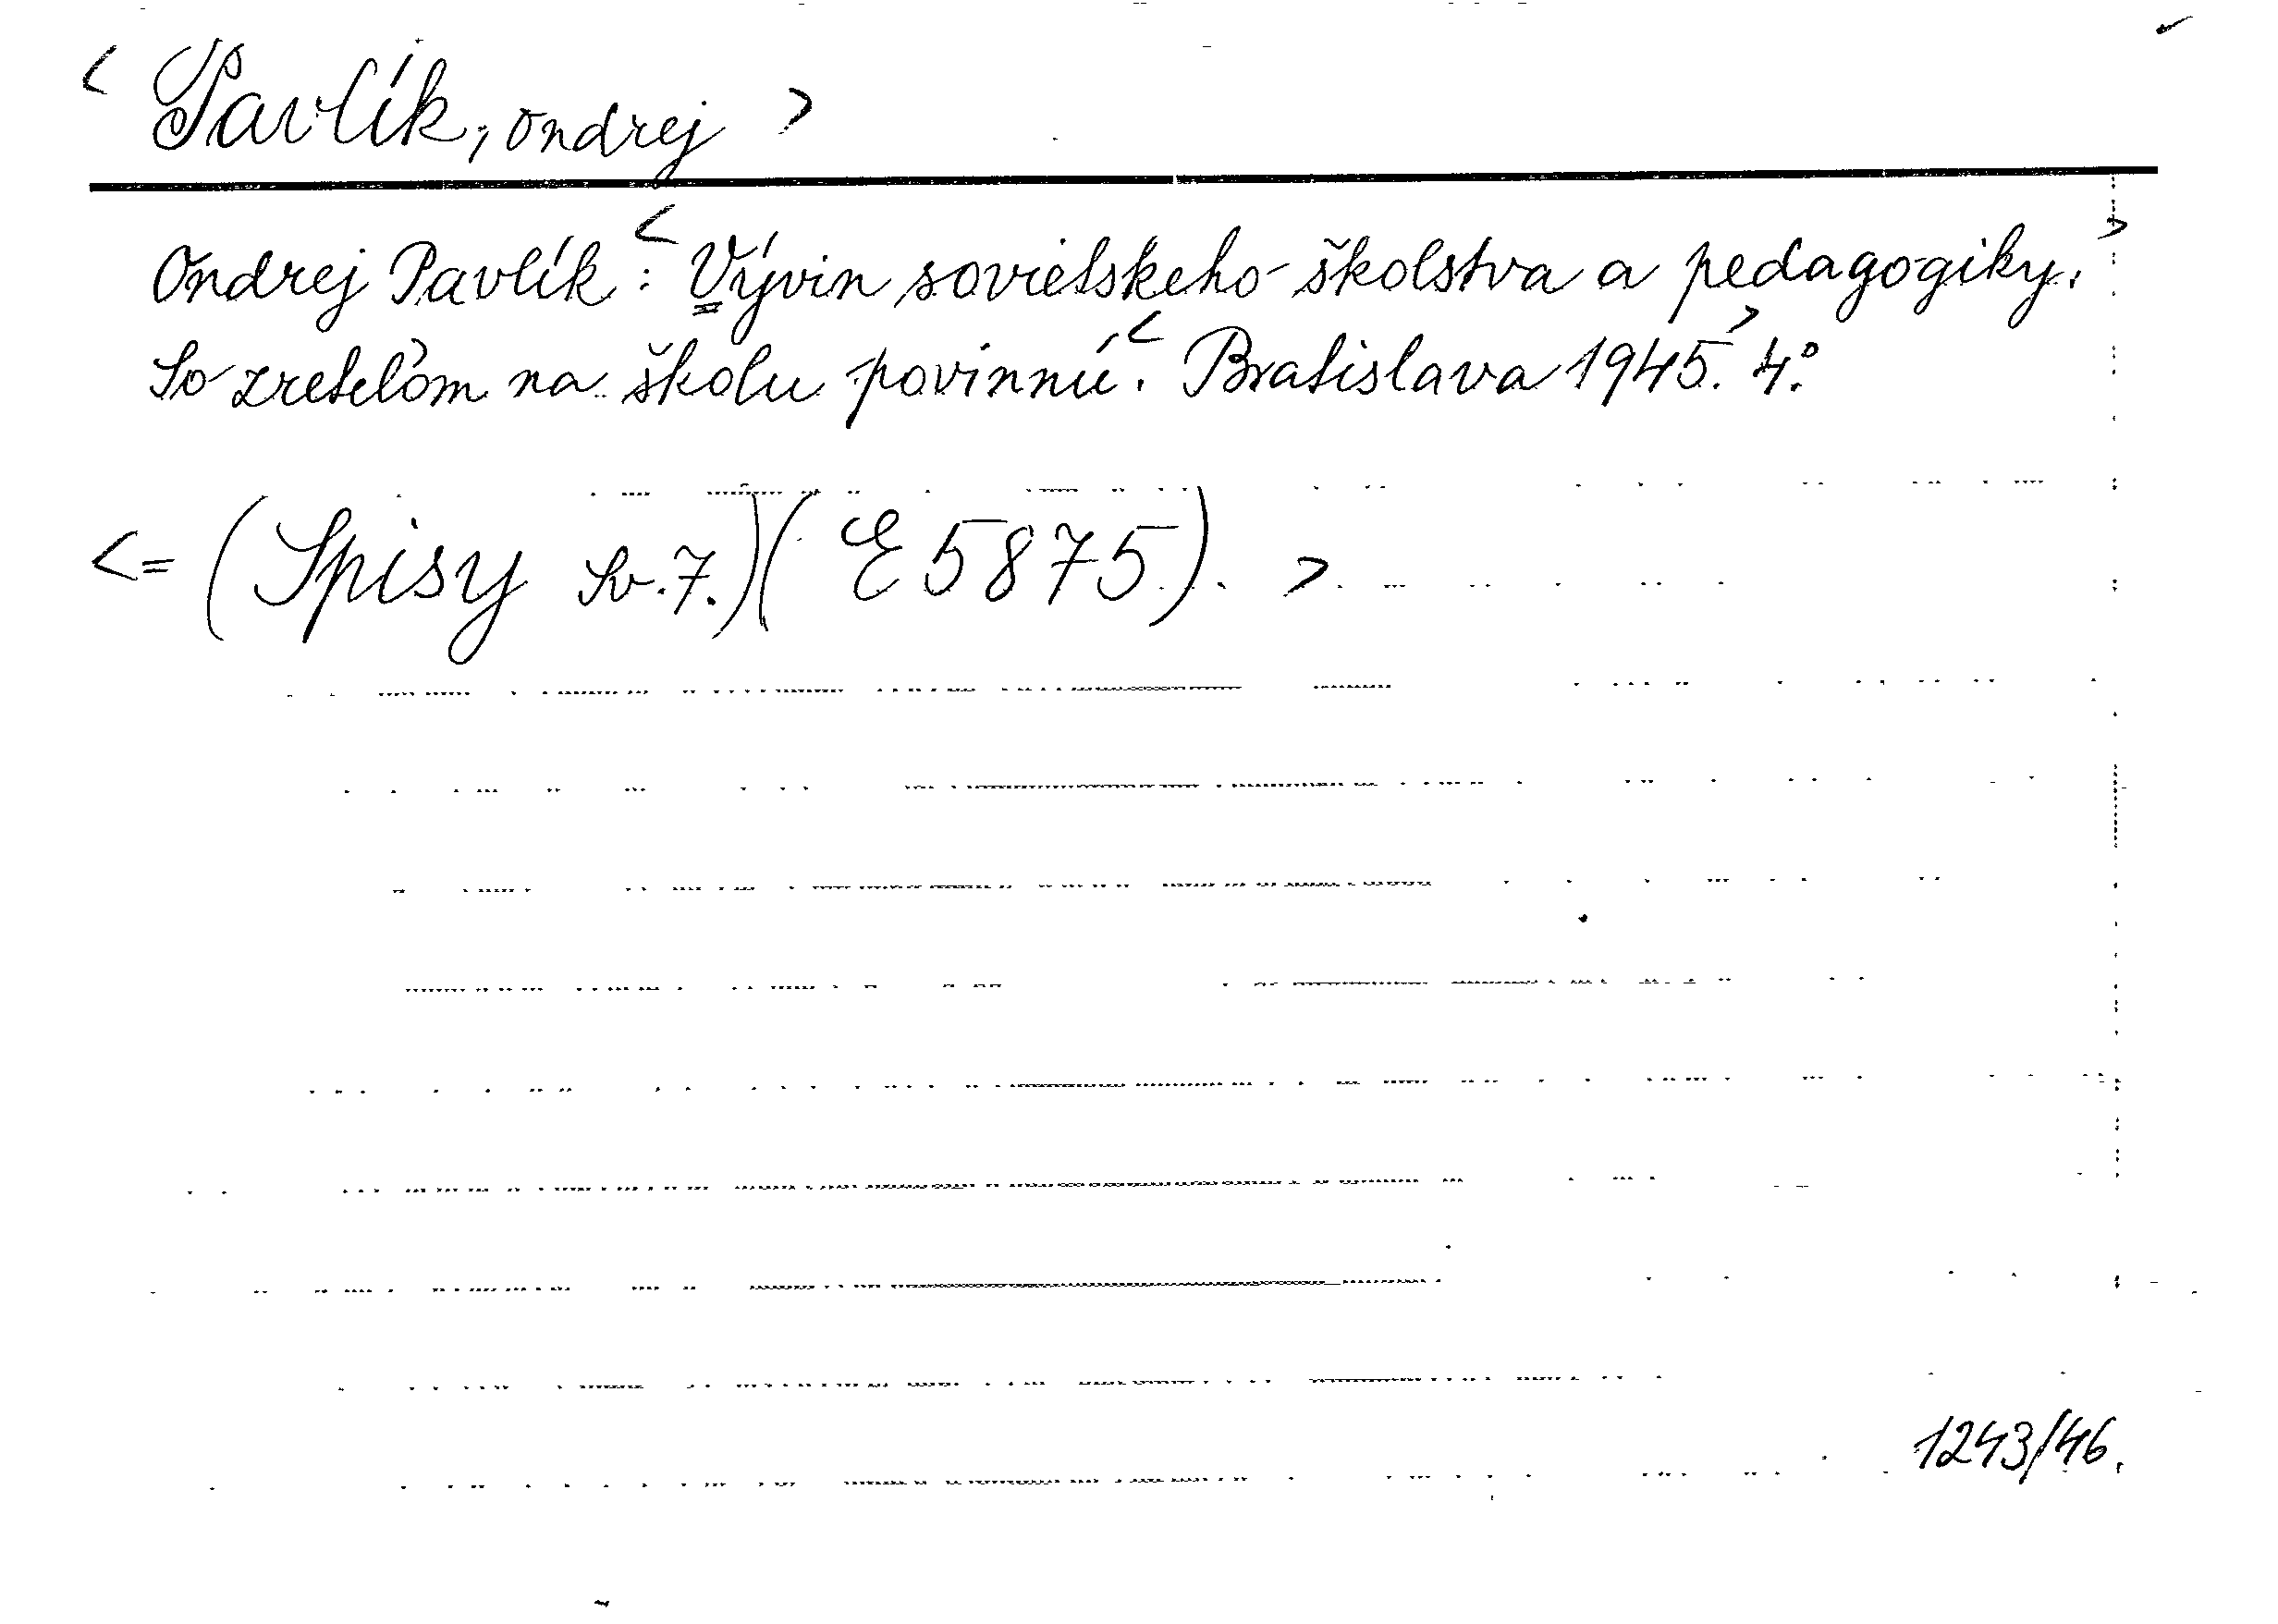 < Pavlík, Ondrej >
Ondrej Pavlík: < Vývin sovietskeho školstva a pedagogiky. >
So zreteľom na školu povinnú. < Bratislava 1945. > 4.°
<= (Spisy Sv. 7.) (E 5875). >
1243/46.